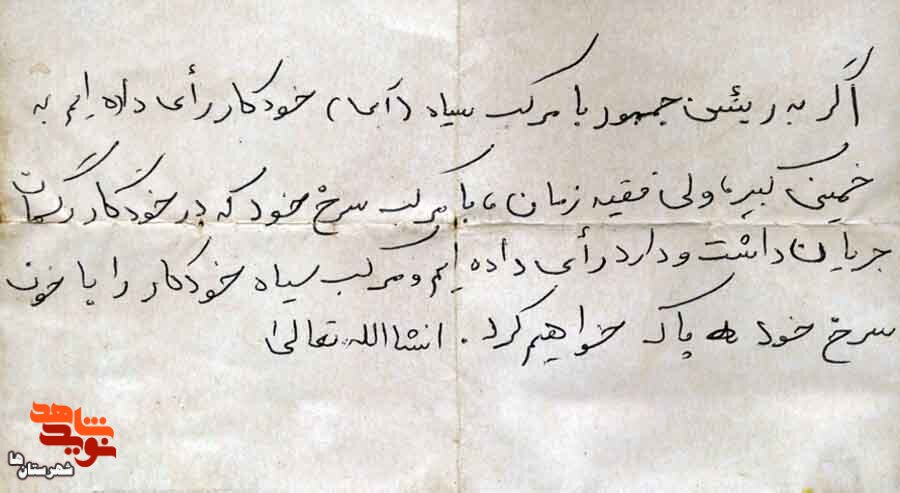 اگر به رئیس جمهور با مرکب سیاه (آبی) خودکار رأی داده ایم به
خمینی کبیر، ولی فقیه زمان، با مرکب سرخ خود که در خودکار رگهامان
جریان داشت و دارد رأی داده ایم و مرکب سیاه خودکار را با خون
سرخ خود پاک خواهیم کرد. انشاالله تعالی
نوید شاهد
شهرستان ها